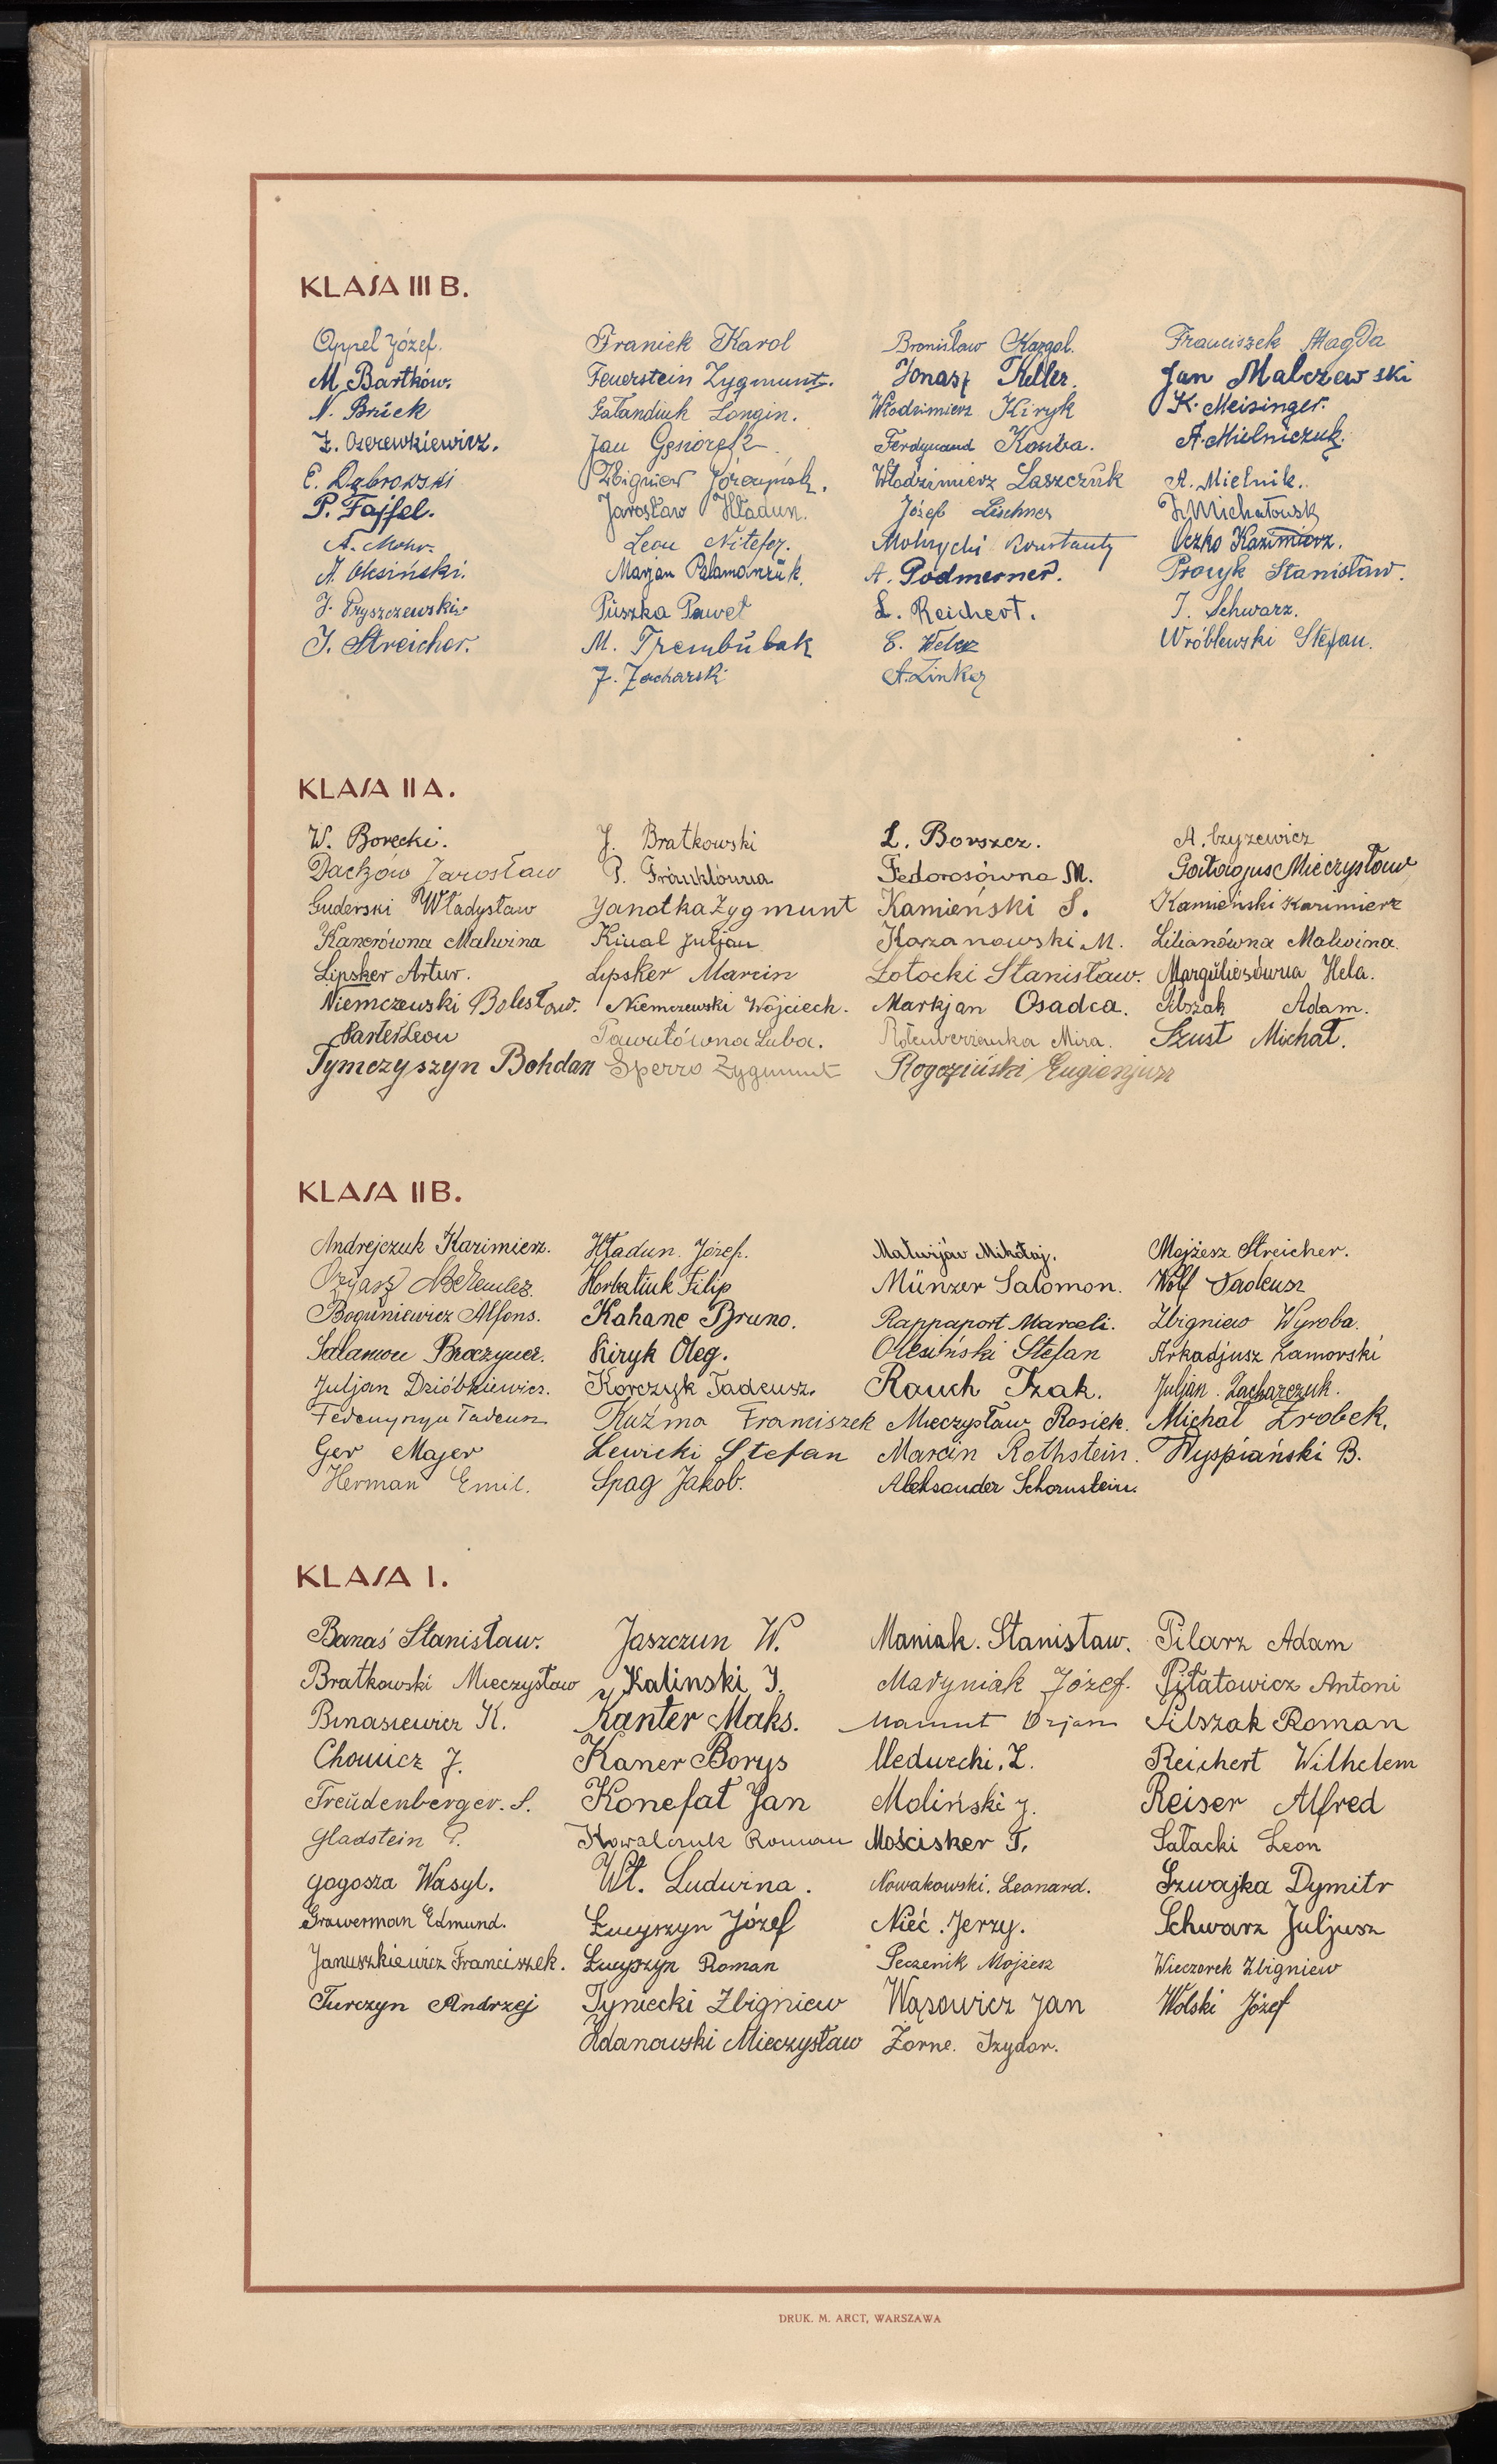 KLASA III B.
Oppel Józef. Franiek Karol Bronisław Kazgol. Franciszek Magda
M. Bartków. Feuerstein Zygmunt. Jonasz Keller. Jan Malczewski
N. Brück Gałandiuk Longin. Włodzimierz Kiryk K. Meisinger.
Jan Gąsiorek Ferdynand Kostba. A. Mielniczuk.
E. Dąbrowski Zbigniew Włodzimierz Laszczuk A. Mielnik.
P. Fajfel. Jarosław Hładun. Józef Lischner Michałowski
A. Mohr. Leon Nitefor. Konstanty Oczko Kazimierz.
A. Olesiński. Marjan Palamarczuk. A. Podmerner. Procyk Stanisław.
J. Pryszczewski Puszka Paweł L. Reichert. J. Schwarz.
J. Streicher. M. Trembulak E. Welcz Wróblewski Stefan.
J. Zacharski A. Zinker
KLASA II A.
W. Borecki. J. Bratkowski L. Borszcz. A. Czyżewicz
Daczów Jarosław P. Fränklówna Fedorosówna M. Mieczysław
Guderski Władysław Janotka Zygmunt Kamieński S. Kamieński Kazimierz
Kanerówna Malwina Kiual Juljan Kazanowski M. Lilianówna Malwina.
Lipsker Artur. Lipsker Marcin Łotocki Stanisław. Marguliesówna Hela.
Niemczewski Bolesław. Niemczewski Wojciech. Markjan Osadca. Pilszak Adam.
Sarter Leon Pawułówna Luba. Rotenberżanka Mira. Szust Michał.
Tymczyszyn Bohdan Sperro Zygmunt Rogoziński Eugienjusz
KLASA II B.
Andrejczuk Kazimierz. Hładun Józef. Matwijów Mikołaj. Mojżesz Streicher.
Horbatiuk Filip Münzer Salomon. Wolf Tadeusz
Boguniewicz Alfons. Kahane Bruno. Rappaport Marceli. Zbigniew Wyroba.
Salamon Broczyner. Kiryk Oleg. Olesiński Stefan Arkadjusz Zamorski
Juljan Dzióbkiewicz. Korczyk Tadeusz. Rauch Izak. Juljan Zacharczuk.
Tadeusz Kuźma Franciszek Mieczysław Rosiek. Michał Źrobek.
Ger Majer Lewicki Stefan Marcin Rothstein. Wyspiański B.
Herman Emil. Spag Jakob. Aleksander Schornstein.
KLASA I.
Banaś Stanisław. Jaszczun W. Maniak. Stanisław. Pilarz Adam
Bratkowski Mieczysław Kalinski J. Maryniak Józef. Piłatowicz Antoni
Binasiewicz K. Kanter Maks. Mamut Orjan Pilszak Roman
Chowicz J. Kaner Borys Medurcki. Z. Reichert Wilhelem
Freudenberger. S. Konefał Jan Moliński J. Reiser Alfred
Gladstein P. Kowalczuk Roman Mościsker T. Sałacki Leon
Gogosza Wasyl. Wł. Ludwina. Nowakowski. Leonard. Szwajka Dymitr
Grawerman Edmund. Łucyszyn Józef Nieć. Jerzy. Schwarz Juljusz
Januszkiewicz Franciszek. Łucyszyn Roman Peczenik Mojżesz Wieczorek Zbigniew
Turczyn Andrzej Tyniecki Zbigniew Wąsowicz Jan Wolski Józef
Zdanowski Mieczysław Zorne. Izydor.
DRUK. M. ARCT, WARSZAWA